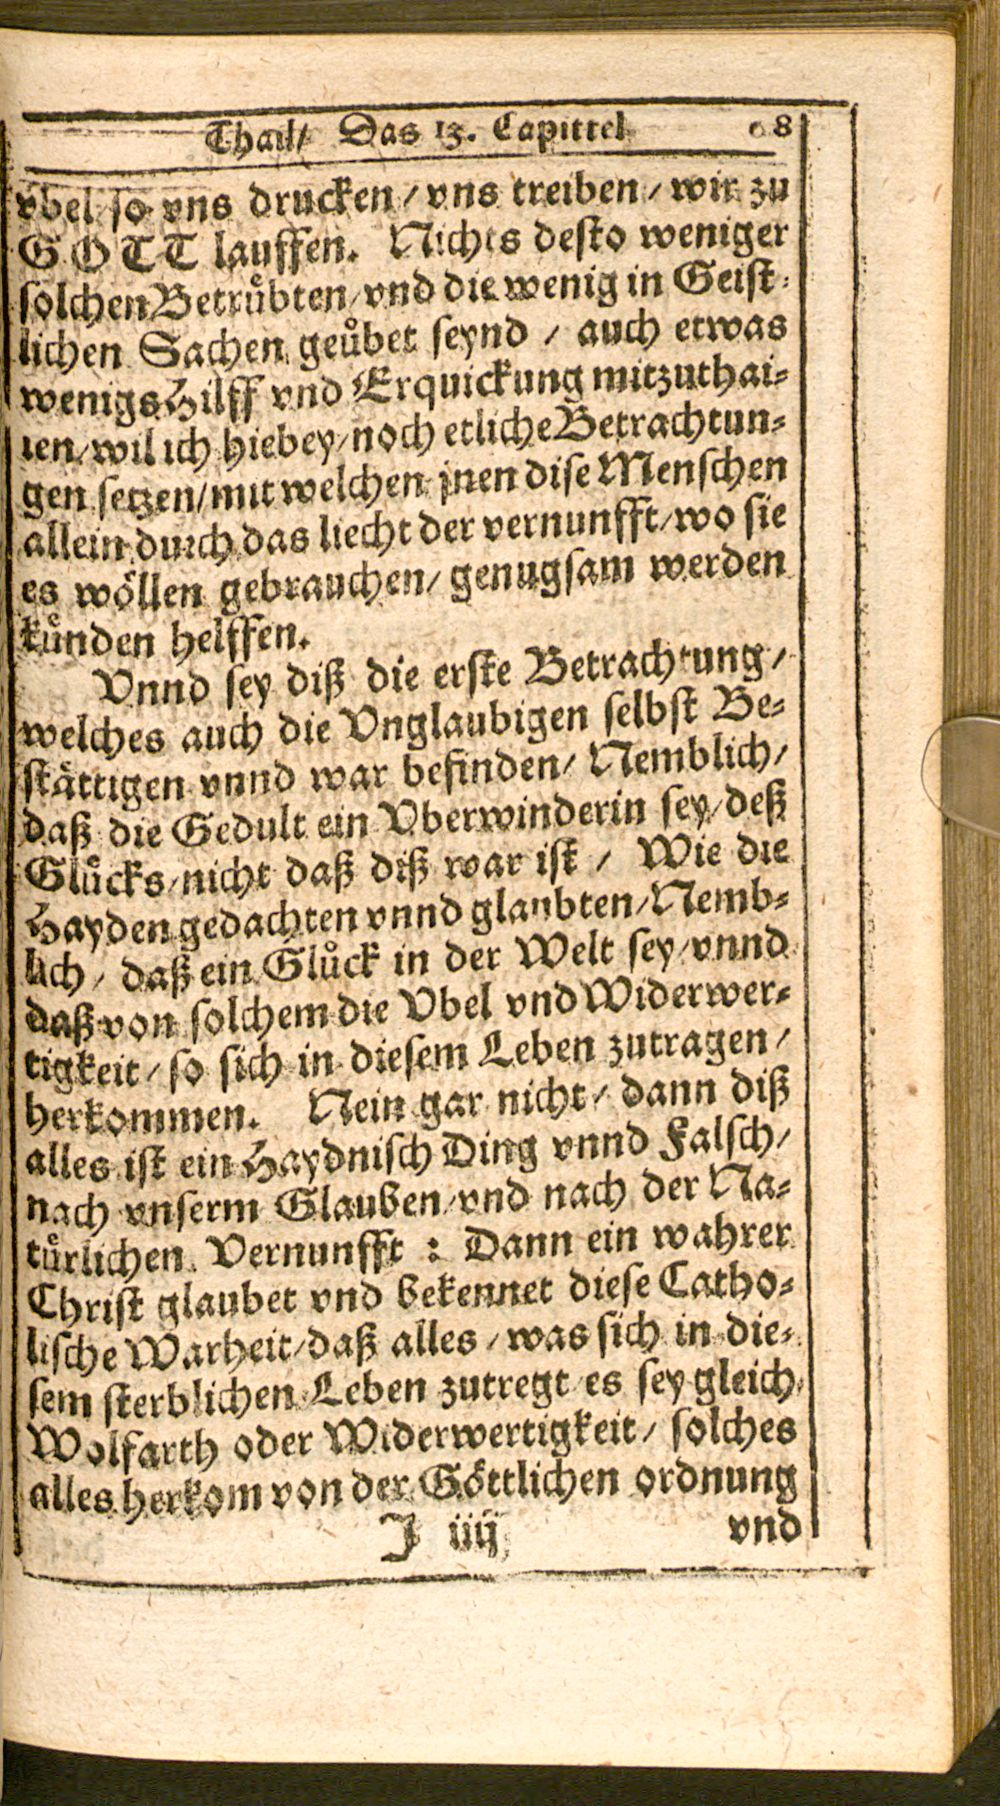 Thail/ Das 13. Capittel 68
vbel so vns drucken / vns treiben / wir zu
GOTT lauffen. Nichts desto weniger
solchen Betruͤbten / vnd die wenig in Geist-
lichen Sachen geuͤbet seynd / auch etwas
wenigs Hilff vnd Erquickung mitzuthai-
len / wil ich hiebey / noch etliche Betrachtun-
gen setzen / mit welchen jnen dise Menschen
allein durch das liecht der vernunfft / wo sie
es woͤllen gebrauchen / genugsam werden
kuͤnden helffen.
Vnnd sey diß die erste Betrachtung /
welches auch die Vnglaubigen selbst Be-
staͤttigen vnnd war befinden / Nemblich /
daß die Gedult ein Vberwinderin sey / deß
Gluͤcks / nicht daß diß war ist / Wie die
Hayden gedachten vnnd glaubten / Nemb-
lich / daß ein Gluͤck in der Welt sey / vnnd
daß von solchem die Vbel vnd Widerwer-
tigkeit / so sich in diesem Leben zutragen /
herkommen. Nein gar nicht / dann diß
alles ist ein Haydnisch Ding vnnd Falsch /
nach vnserm Glauben / vnd nach der Na-
tuͤrlichen Vernunfft : Dann ein wahrer
Christ glaubet vnd bekennet diese Catho-
lische Warheit / daß alles / was sich in die-
sem sterblichen Leben zutregt / es sey gleich
Wolfarth oder Widerwertigkeit / solches
alles herkom von der Goͤttlichen ordnung
J iiij vnd